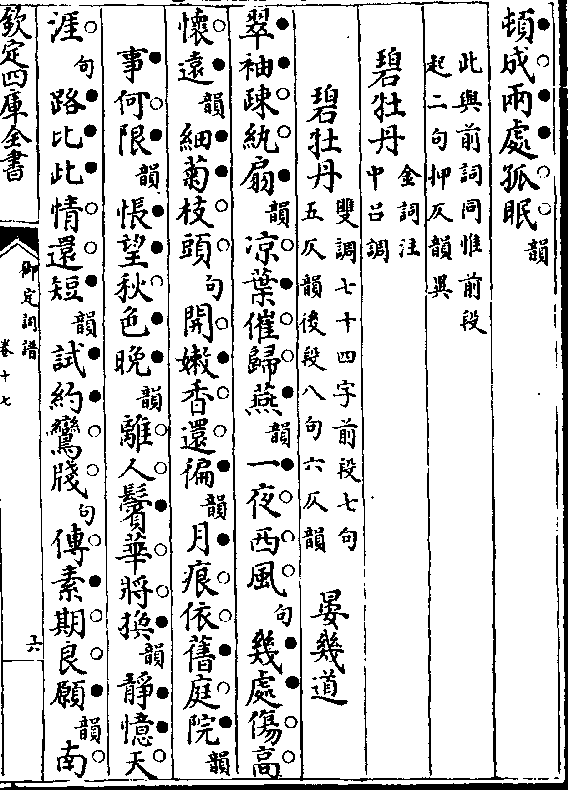 頓成兩處孤眠韻
此與前詞同惟前段
起二句押仄韻異
碧牡丹 金詞注
中呂調
碧牡丹 雙調七十四字前段七句
五仄韻後段八句六仄韻 晏幾道
翠袖疎紈扇韻凉葉催歸燕韻一夜西風句幾處傷高
懷遠韻細菊枝頭句開嫩香還徧韻月痕依舊庭院韻
事何限韻悵望秋色晚韻離人鬢華將換韻靜憶天
涯句路比此情還短韻試約鸞牋句傳素期良願韻南
欽定四庫全書
御定詞譜
卷十七
六